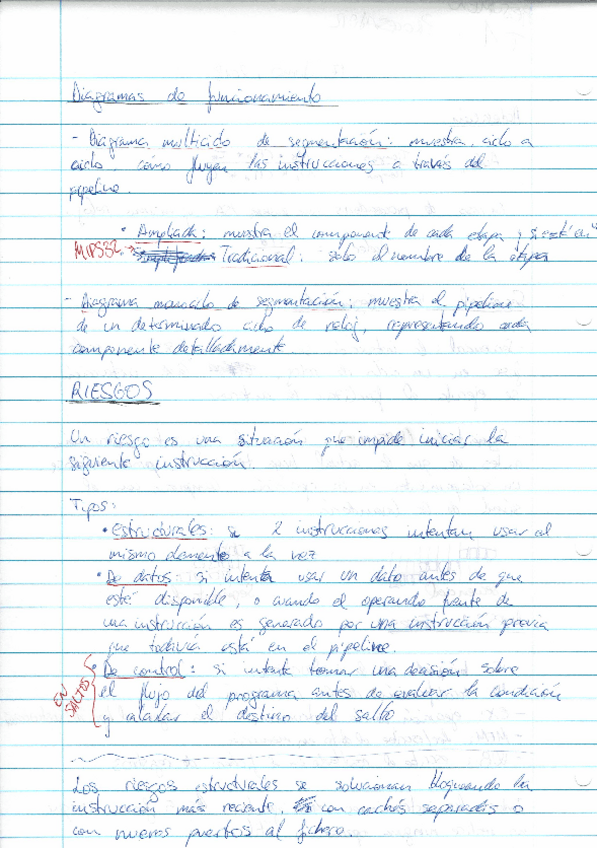 Diagramas de funcionamiento
- Diagrama multiciclo de segmentación: muestra, ciclo a
ciclo, cómo fluyen las instrucciones a través del
pipeline.
• Ampliada: muestra el componente de cada etapa y si está
MIPS32 → Tradicional: solo el nombre de la etapa
- Diagrama monociclo de segmentación: muestra el pipeline
de un determinado ciclo de reloj, representando cada
componente detalladamente.
RIESGOS
Un riesgo es una situación que impide iniciar la
siguiente instrucción.
Tipos:
• estructurales: si 2 instrucciones intentan usar al
mismo elemento a la vez
• De datos: si intenta usar un dato antes de que
esté disponible, o cuando el operando fuente de
una instrucción es generado por una instrucción previa
que todavía está en el pipeline.
• De control: si intenta tomar una decisión sobre
EN SALTOS
el flujo del programa antes de evaluar la condición
y calcular el destino del salto
Los riesgos estructurales se solucionan bloqueando la
instrucción más reciente, con cachés separadas o
con nuevos puertos al fichero.